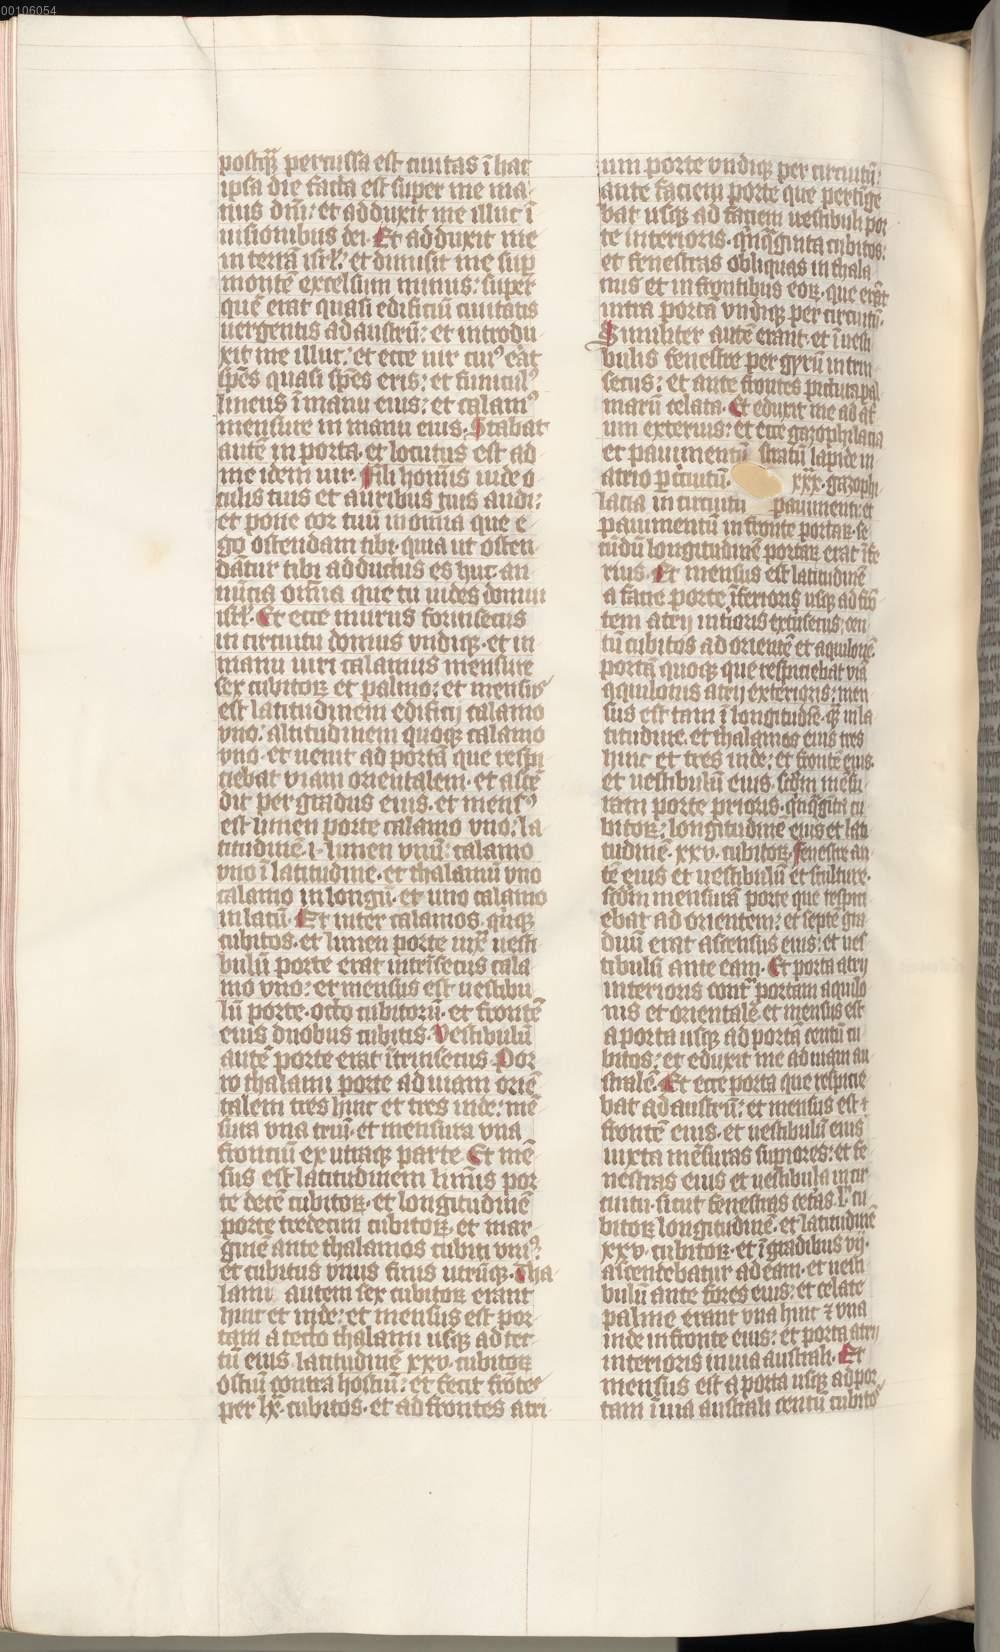 00106054
postq̃ percussa est ciuitas ī hac
ipsa die facta est super me ma
nus dñi: et adduxit me illuc ī
uisionibus dei. Et adduxit me
in terrā isrl̃: et dimisit me sup̱
montē excelsum nimis: super
quē erat quasi edificiū ciuitatis
uergentis ad austrū: et introdu
xit me illuc: et ecce uir cuiꝰ erat
spēs quasi spēs eris: et funiculꝰ
lineus ī manu eius: et calamꝰ
mensure in manu eius. Stabat
autē in porta. et locutus est ad
me idem uir. Fili hoīnis uide o
culis tuis et auribus tuis audi:
et pone cor tuū in omia que e
go ostendam tibi. quia ut osten
dātur tibi adductus es huc. an
nūcia omīa que tu uides domui
isrl̃. Et ecce murus forinsecus
in circuitu domus vndiqꝫ. et in
manu uiri calamus mensure
sex cubitoꝝ et palmo: et mensus
est latitudinem edificij calamo
vno. altitudinem quoqꝫ calamo
vno. et uenit ad portā que respi
ciebat viam orientalem. et ascē
dit per gradus eius. et mensꝰ
est limen porte calamo vno: la
titudinē .i. limen vnū calamo
vno ī latitudine. et thalamū vno
calamo in longū. et uno calamo
in latū. Et inter calamos. qnqꝫ
cubitos. et limen porte iuxͣ uesti
bulū porte erat intrīsecus cala
mo vno: et mensus est uestibu
lū porte. octo cubitorū. et frontē
eius duobus cubitis. Vestibulū
autē porte erat ītrinsecus. Por
ro thalami porte ad uiam oriē
talem tres hinc et tres inde: mē
sura vna triū. et mensura vna
frontiū ex utraqꝫ parte Et mē
sus est latitudinem liminis por
te decē cubitoꝝ. et longitudinē
porte tredecim cubitoꝝ. et mar
ginē ante thalamos cubiti vniꝰ:
et cubitus vnus finis utrīqꝫ. Tha
lami autem sex cubitoꝝ erant
hinc et inde: et mensus est por
tam a tecto thalami usqꝫ ad tec
tū eius latitudinē xxv. cubitoꝝ
ostiū contra hostiū: et fecit frōtes
per lx̃. cubitos. et ad frontes atri
um porte vndiqꝫ per circuitū:
ante faciem porte que pertinge
bat usqꝫ ad faciem uestibuli por
te interioris. qnq̃ginta cubitos:
et fenestras obliquas in thala
mis et in frontibus eoꝝ. que erāt
intra portā vndiqꝫ per circuitū.
Similiter autē erant. et ī uesti
bulis fenestre per gyrū intrin
secus: et ante frontes pictura pal
marū celata. Et eduxit me ad at̃
um exterius: et ecce gazophilacia
et pauimentū stratū lapide in
atrio p̱ circuitū. xxx. gazophi
lacia in circuitu pauimenti: et
pauimentū in fronte portaꝝ. se
cūdū longitudinē portaꝝ erat īfe
rius. Et mensus est latitudinē
a facie porte īferioris usqꝫ ad frō
tem atrij inṫioris extrīsecus: cen
tū cubitos ad orientē et aquilonē.
portā quoqꝫ que respiciebat viā
aquilonis atrij exterioris: men
sus est tam ī longitudīe. q̃ in la
titudine. et thalamos eius tres
hinc et tres inde: et frontē eius.
et uestibulū eius. scd̃m mēsu
ram porte prioris. qnq̃gīta cu
bitoꝝ: longitudine eius et lati
tudinē. xxv. cubitoꝝ. Fenestre an
tē eius et uestibulū et sculture.
scd̃m mensurā porte que respici
ebat ad orientem: et septē gra
duū erat ascensus eius: et ues
tibulū ante eam. Et porta atrij
interioris contͣ portam aquilo
nis et orientalē. et mensus est
a porta usqꝫ ad portā centū cu
bitos: et eduxit me ad uiam au
stralē. Et ecce porta que respicie
bat ad austrū: et mensus est ⁊
frontē eius. et uestibulū eius
iuxta mēsuras sup̱iores: et fe
nestras eius et uestibula in cir
cuitu. sicut fenestras ceťas. l. cu
bitoꝝ longitudinē. et latitudinē
xxv. cubitoꝝ. et ī gradibus vij.
ascendebatur ad eam. et uesti
bulū ante fores eius: et celate
palme erant vna hinc ⁊ vna
inde in fronte eius: et porta atrij
interioris in uia australi. Et
mensus est a porta usqꝫ ad por
tam ī uia australi centū cubitos